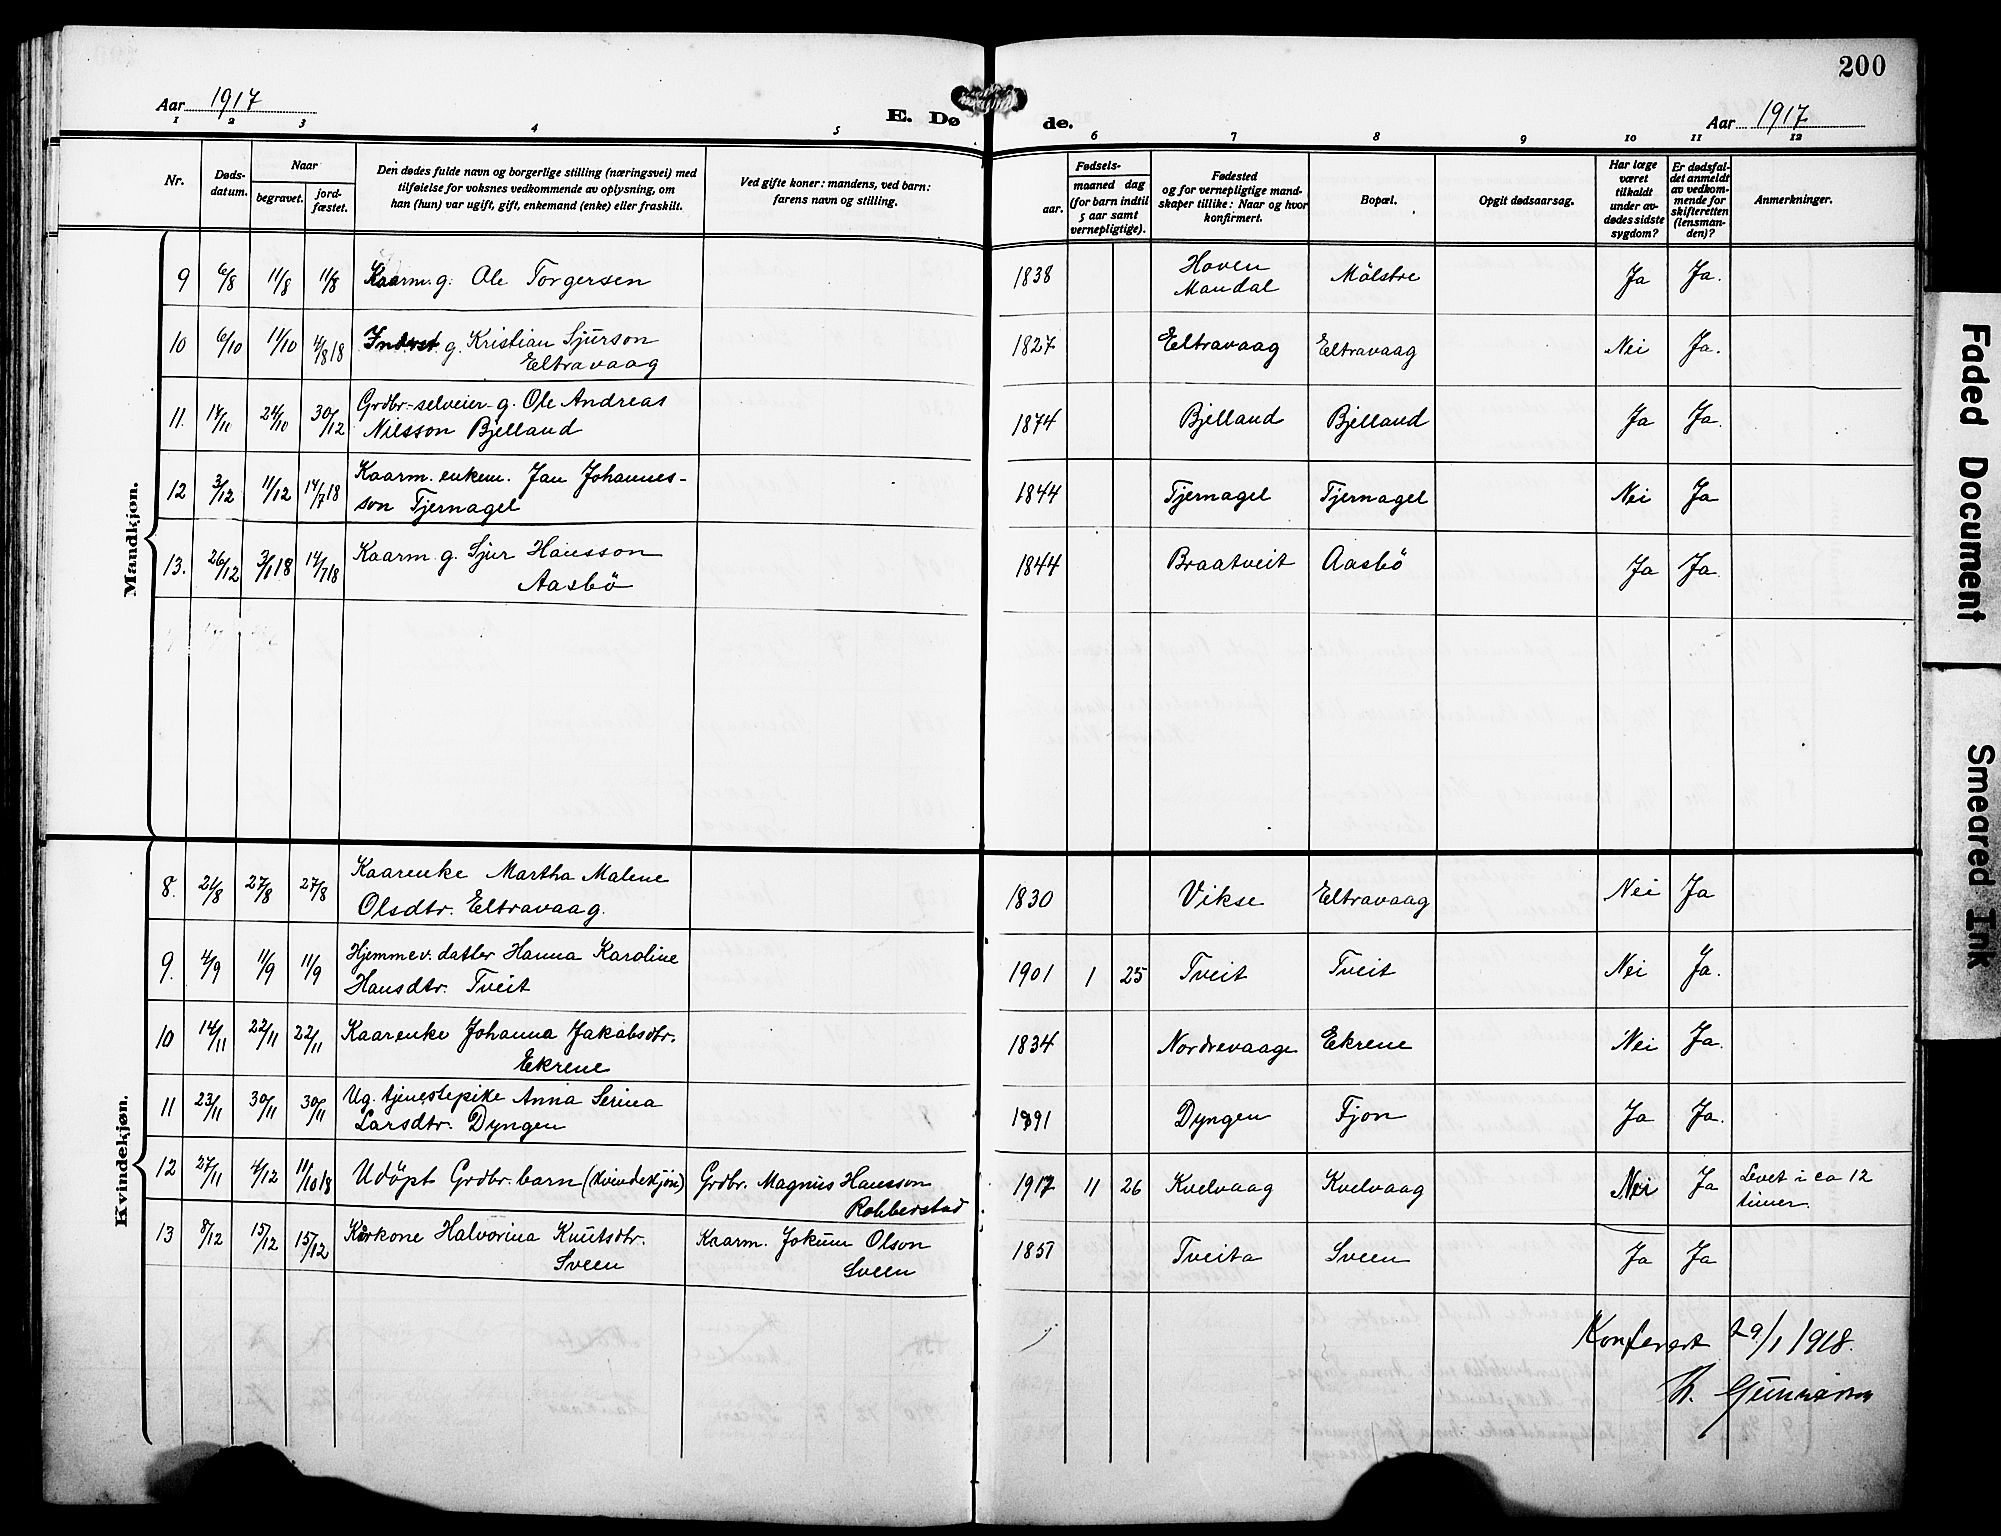 200
Aar 1917
E. Døde.
Aar 1917
1 2 3 4 5 6 7 8 9 10 11 12
Nr.
Døds-
datum.
Naar
begravet.
jord-
fæstet.
Den dødes fulde navn og borgerlige stilling (næringsvei) med
tilføielse for voksnes vedkommende av oplysning, om
han (hun) var ugift, gift, enkemand (enke) eller fraskilt.
Ved gifte koner: mandens, ved barn:
farens navn og stilling.
Fødsels-
aar.
maaned dag
(for barn indtil
5 aar samt
vernepligtige).
Fødested
og for vernepligtige mand-
skaper tillike: Naar og hvor
konfirmert.
Bopæl.
Opgit dødsaarsag.
Har læge
været
tilkaldt
under av-
dødes sidste
sygdom?
Er dødsfal-
det anmeldt
av vedkom-
mende for
skifteretten
(lensman-
den)?
Anmerkninger.
Mandkjøn.
9 6/8 11/8 11/8 Kaarm. g. Ole Torgersen 1838 Hoven Mandal Mölstre Ja Ja.
10 6/10 11/10 4/8 18 Inderst g. Kristian Sjurson
Eltravaag 1827 Eltravaag Eltravaag Nei Ja.
11. 14/10 24/10 30/12 Grdbr.-selveier-g. Ole Andreas
Nilsson Bjelland 1874 Bjelland Bjelland Ja Ja.
12 3/12 11/12 14/7 18 Kaarm. enkem. Jan Johannes-
son Tjernagel 1844 Tjernagel Tjernagel Nei Ja
13. 26/12 3/1 18 14/7 18 Kaarm. g. Sjur Hansson
Aasbö 1844 Braatveit Aasbö Ja Ja.
Kvindekjøn.
8. 21/8 27/8 27/8 Kaarenke Martha Malene
Olsdtr. Eltravaag. 1830 Vikse Eltravaag Nei Ja
9. 4/9 11/9 11/9 Hjemmev. datter Hanna Karoline
Hansdtr. Tveit 1901 1 25 Tveit Tveit Nei Ja.
10 14/11 22/11 22/11 Kaarenke Johanna Jakobsdtr.
Ekrene 1834 Nordrevaage Ekrene Nei Ja.
11 23/11 30/11 30/11 Ug. tjenestepike Anna Serina
Larsdtr. Dyngen 1891 Dyngen Fjon Ja Ja.
12 27/11 4/12 11/10 18 Udöpt Grdbr. barn (kvindekjön) Grdbr. Magnus Hansson
Robberstad 1917 11 26 Kvelvaag Kvelvaag Nei Ja Levet i ca 12
timer.
13 8/12 15/12 15/12 Kårkone Halvorina Knutsdtr.
Sveen Kaarm. Jokum Olson
Sveen 1857 Tveita Sveen Ja Ja
Konferert 29/1 1918.
Faded Document
Smeared Ink